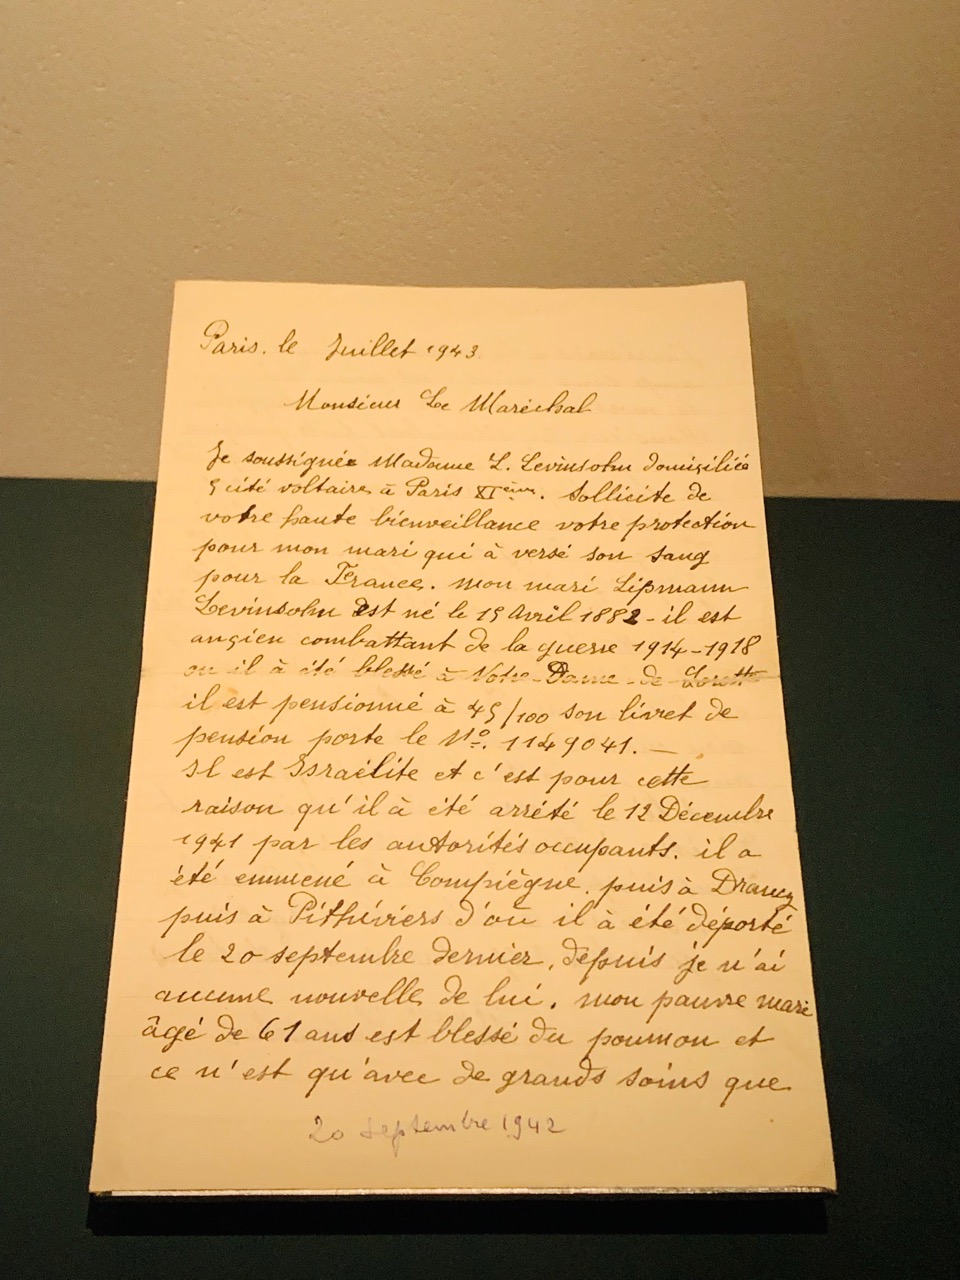 Paris. le Juillet 1943
Monsieur Le Maréchal
Je soussignée Madame L. Levinsohn domiçiliée
5 cité voltaire à Paris XIème. Sollicite de
votre haute bienveillance votre protection
pour mon mari qui à versé son sang
pour la France. mon mari Lipmann
Levinsohn est né le 15 Avril 1882 - il est
ançien combattant de la guerre 1914-1918
ou il à été blessé à Notre-Dame-de Lorette
il est pensionné à 45/100 son livret de
pension porte le No. 1149041. —
Il est Israélite et c'est pour cette
raison qu'il à été arrété le 12 Décembre
1941 par les autorités occupants. il a
été emmené à Compiègne. puis à Drancy
puis à Pithiviers d'où il à été déporté
le 20 septembre dernier. depuis je n'ai
aucune nouvelle de lui. mon pauvre mari
âgé de 61 ans est blessé du poumon et
ce n'est qu'avec de grands soins que
20 septembre 1942